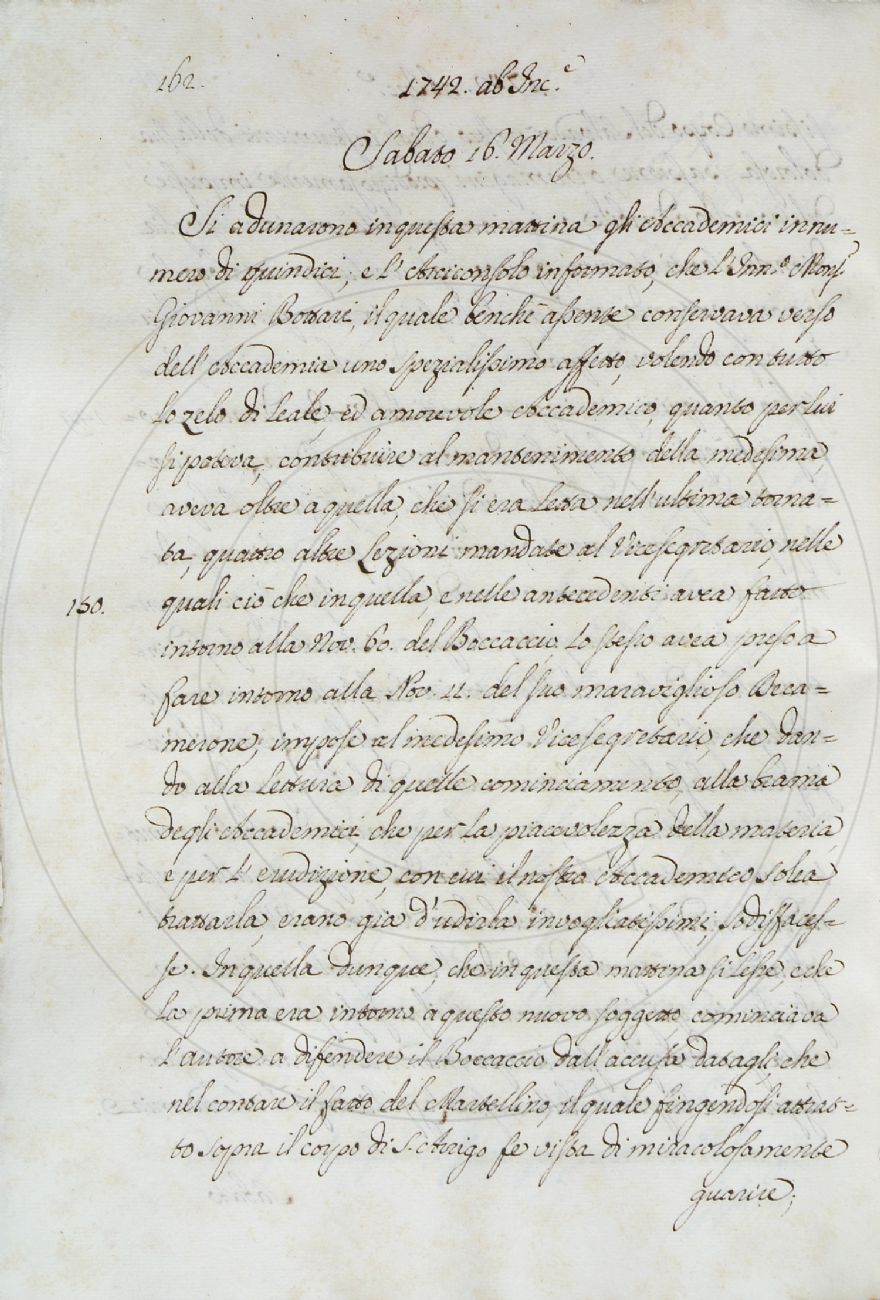 162.
1742. ab Inc.e
Sabato 16. Marzo.
Si adunarono in questa mattina gli Accademici in nu=
mero di Quindici; e l'Arciconsolo informato, che l'Inn.o Monsr
Giovanni Bottari, il quale benchè assente conservava verso
dell'Accademia uno spezialissimo affetto, volendo con tutto
lo zelo di leale, ed amorevole Accademico, quanto per lui
si poteva, contribuire al mantenimento della medesima,
aveva oltre a quella, che si era letta nell'ultima torna=
ta, quattro altre Lezioni mandate al Vicesegretario, nelle
150.
quali ciò che in quella, e nelle antecedenti avea fatto
intorno alla Nov. 60. del Boccaccio, lo stesso avea preso a
fare intorno alla Nov. 11. del suo maraviglioso Deca=
merone; impose al medesimo Vicesegretario, che dan=
do alla lettura di quelle cominciamento, alla brama
degli Accademici, che per la piacevolezza della materia,
e per l'erudizione, con cui il nostro Accademico solea
trattarla, erano già d'udirla invogliatissimi, sodisfaces=
se. In quella dunque, che in questa mattina si lesse, e che
la prima era intorno a questo nuovo soggetto cominciava
l'autore a difendere il Boccaccio dall'accusa datagli, che
nel contare il fatto del Martellino, il quale fingendosi attrat=
to sopra il corpo di S. Arrigo fe vista di miracolosamente
guarire;